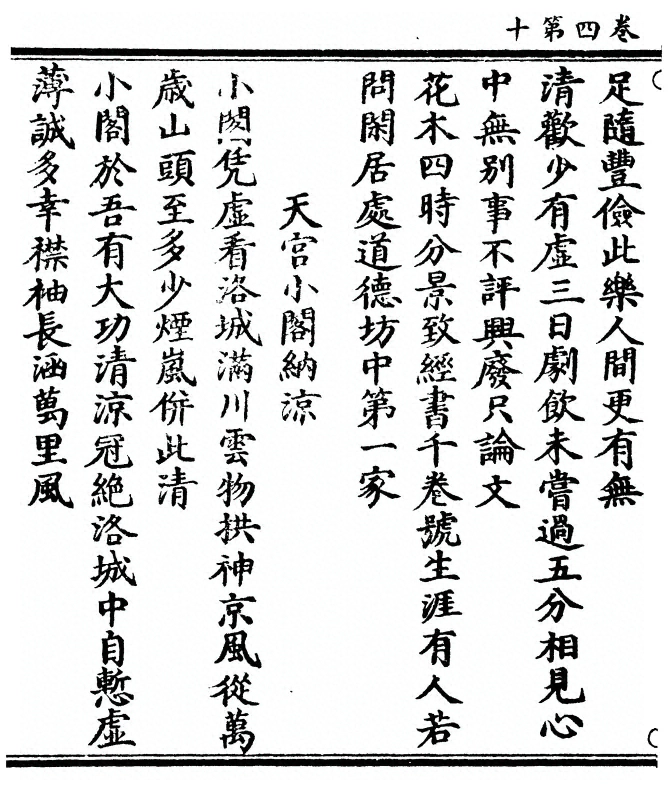 卷四第十
足隨豐儉此樂人間更有無
清歡少有虛三日劇飲未嘗過五分相見心
中無別事不評興廢只論文
花木四時分景致經書千卷號生涯有人若
問閑居處道德坊中第一家
天宮小閣納涼
小閣凭虛看洛城滿川雲物拱神京風從萬
歲山頭至多少煙嵐併此清
小閣於吾有大功清涼冠絶洛城中自慙虛
薄誠多幸襟袖長涵萬里風